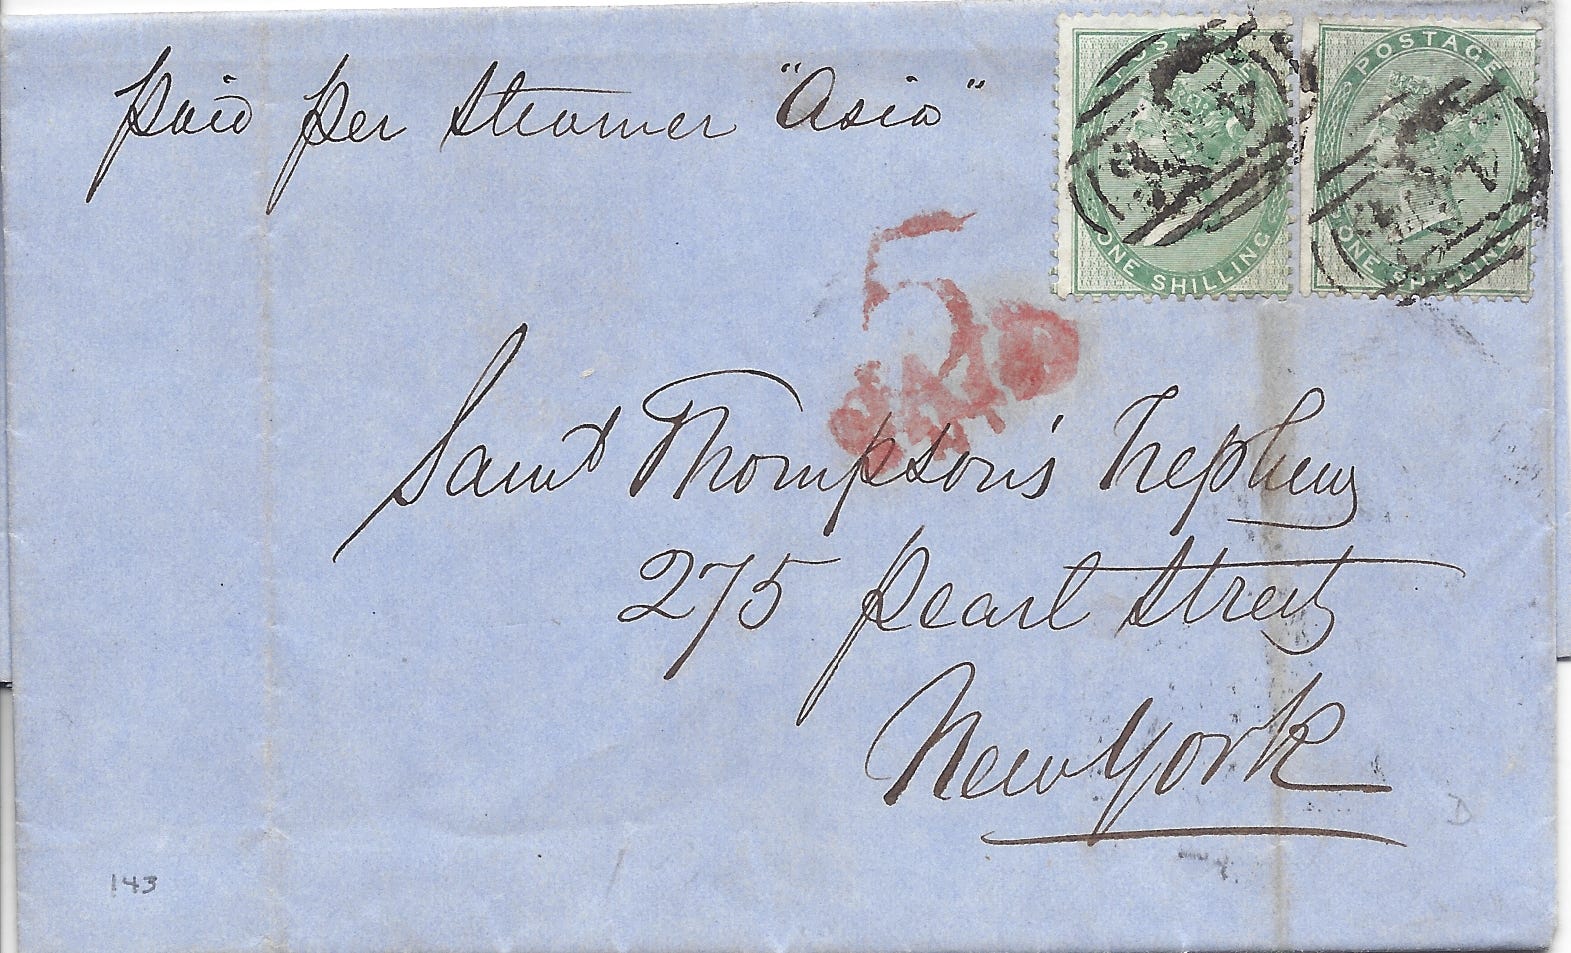 paid per Steamer "Asia"
POSTAGE
ONE SHILLING
POSTAGE
ONE SHILLING
5
PAID
Saml Thompson's Nephew
275 Pearl Street
New York
143
D